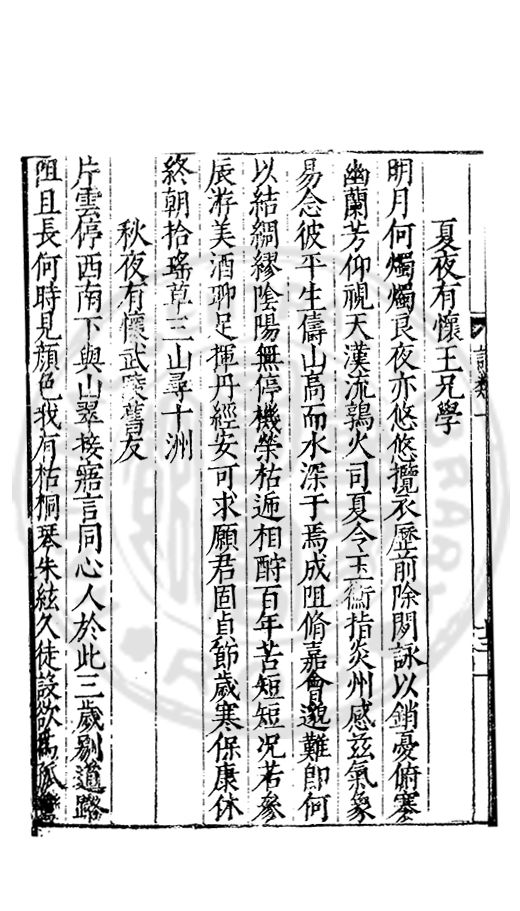 詩類一
夏夜有懷王兄學
明月何燭燭良夜亦悠悠攬衣歷前除閑詠以銷憂俯搴
幽蘭芳仰視天漢流鶉火司夏令玉衡指炎州感茲氣象
易念彼平生儔山高而水深于焉成阻脩嘉會邈難即何
以結綢繆陰陽無停機榮枯遞相酧百年苦短短况若參
辰游美酒聊足揮丹經安可求願君固貞節歲寒保康休
終朝拾瑤草三山尋十洲
秋夜有懷武陵舊友
片雲停西南下與山翠接寤言同心人於此三歲别道路
阻且長何時見顔色我有枯桐琴朱絃久徒設欲為孤鸞